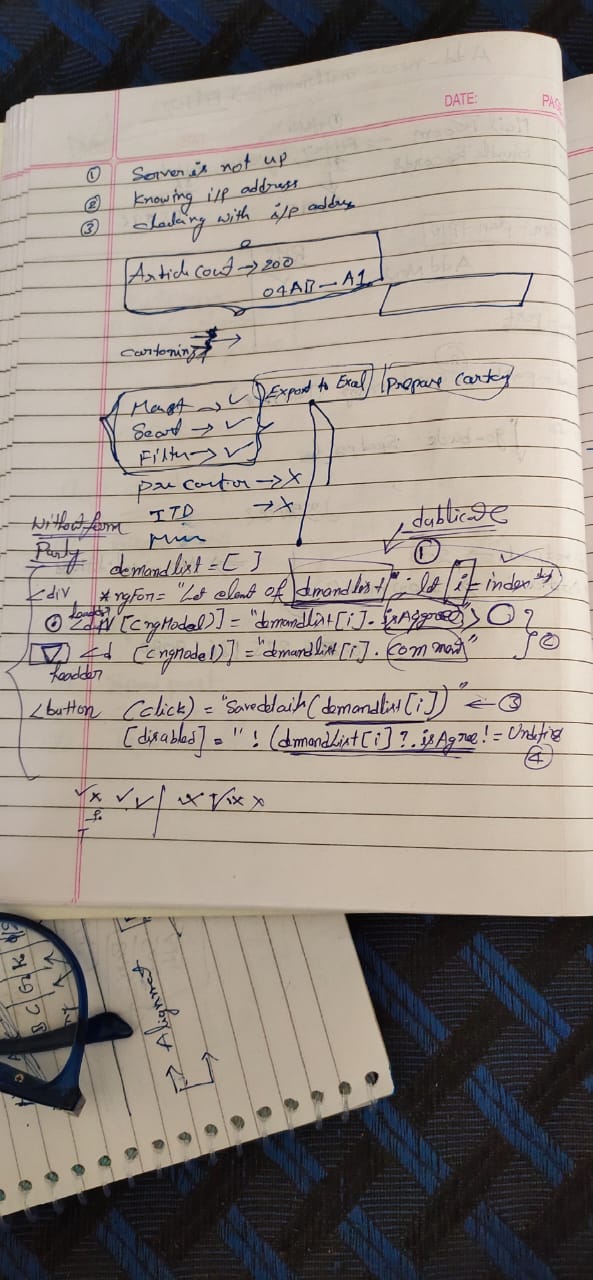 DATE: PAG
① Server is not up
② Knowing i/p address
③ checking with i/p addres
Article Cout → 200
04AB — A1
cartoning →
Export to Exal Prepare Carting
→ ✓
Seard → ✓
Filter → ✓
Pre cartion → X
ITD → X
Without form
Party
dublicate
①
demandlist = [ ]
<div *ngFor= "Let elemt of dmandlist"; let i = index
<div [(ngModel)] = "demandlist[i].isAggree"> ②
<d [(ngModel)] = "demandlist[i].Comment"
headder
<button (click) = "Savedetails(demandlist[i])" ← ③
[disabled] = "!(demandList[i]?.isAgree != Undefied
④
✓ x ✓ ✓ x ✓ x x
T
B C G2K
→ Alignmet